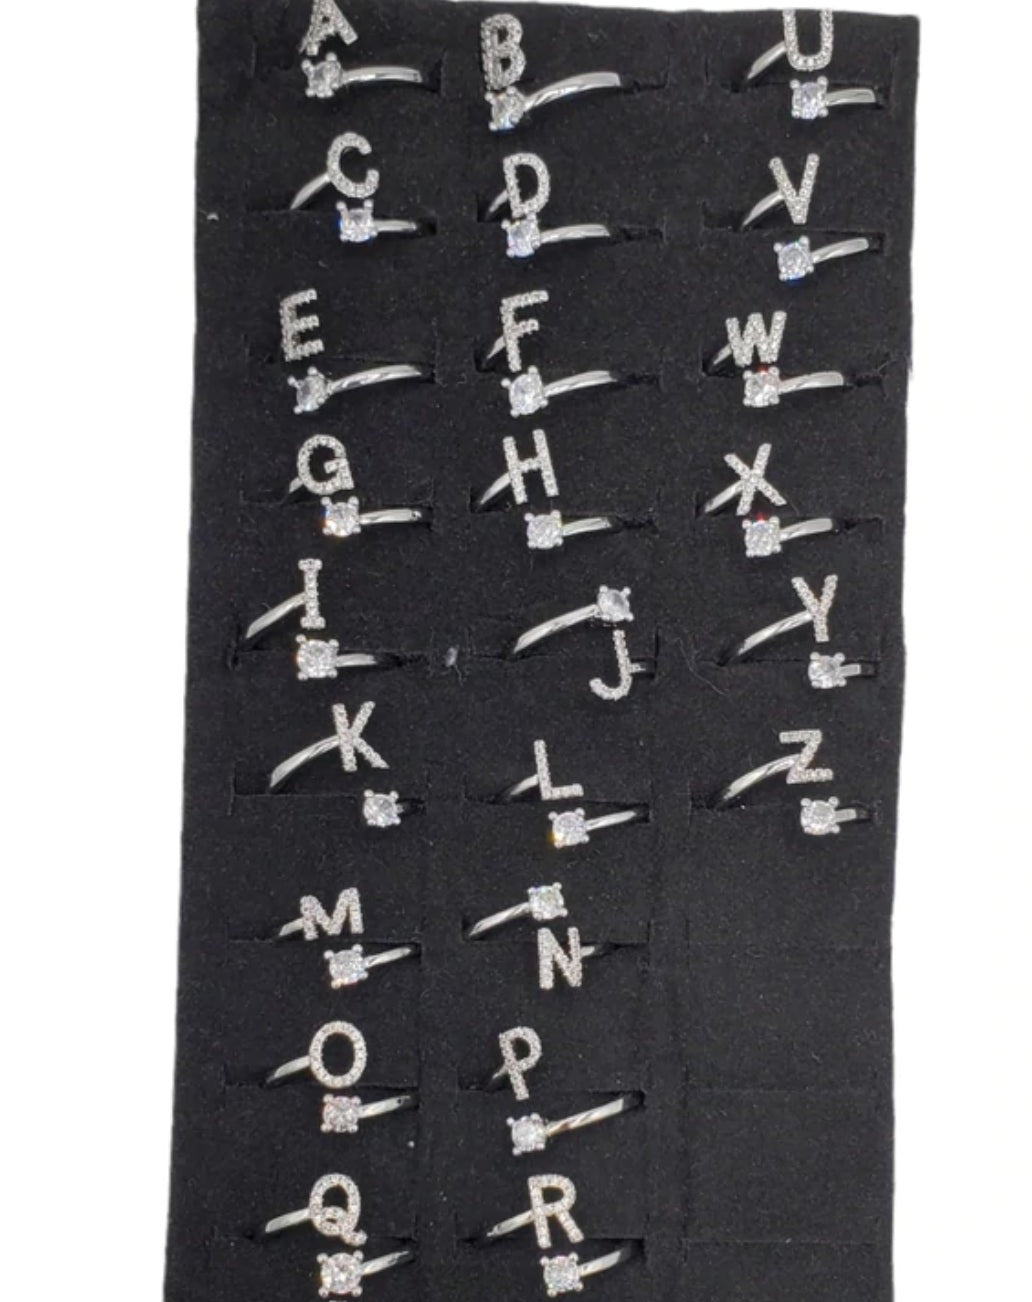 A B U
C D V
E F W
G H X
I J Y
K L Z
M N
O P
Q R